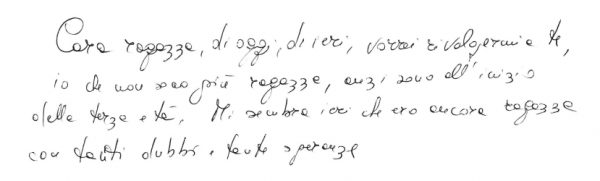 Cara ragazza, di oggi, di ieri, vorrei rivolgermi a te,
io che non sono più ragazza, anzi sono all'inizio
della terza età. Mi sembra ieri che ero ancora ragazza
con tanti dubbi e tante speranze